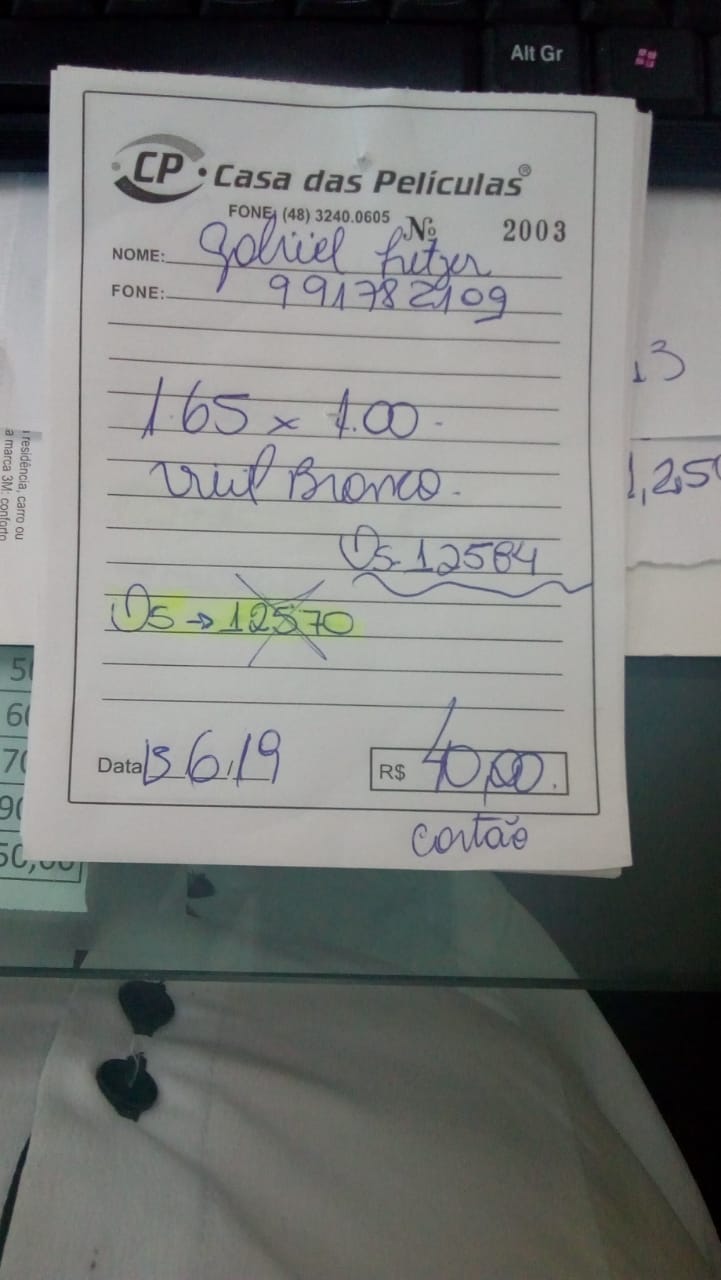 Alt Gr
CP · Casa das Películas®
FONE: (48) 3240.0605 Nº 2003
NOME: Gabriel
FONE: 991782109
1.65 x 1.00-
Vinil Branco.
Os 12584
Os → 12570
Data 13 6 / 19
R$ 40,00.
cartão
13
1,250
residência, carro ou
a marca 3M: conforto
50
60
70
90
50,00